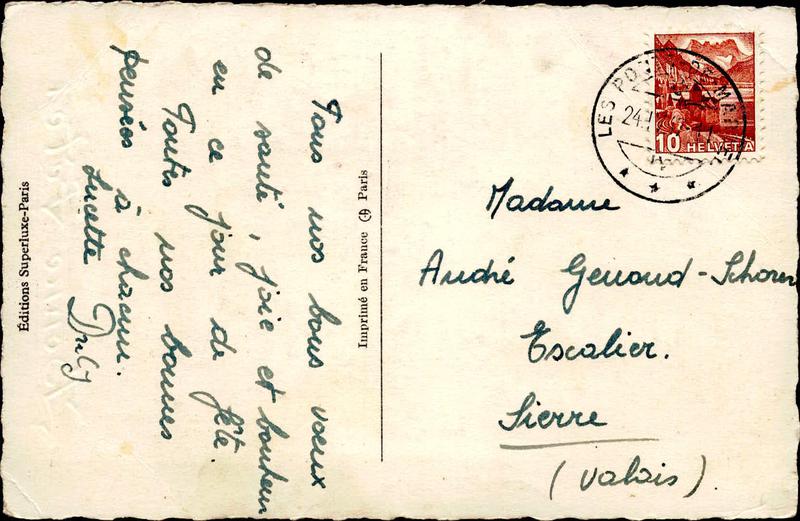 Tous nos bons voeux
de santé, joie et bonheur
en ce jour de fête.
Toutes nos bonnes
pensées à chacun.
Lucette
Éditions Superluxe-Paris
Imprimé en France Paris
LES PON
24.
10 HELVETIA
Madame
André Genoud-Schorer
Escalier.
Sierre
(Valais)